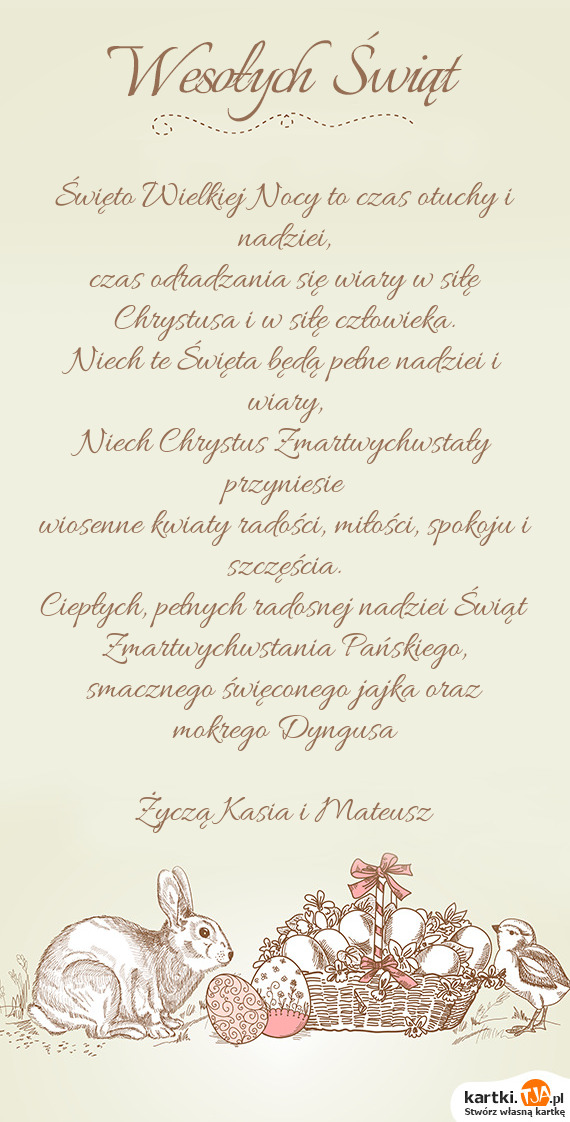 Wesołych Świąt
Święto Wielkiej Nocy to czas otuchy i
nadziei,
czas odradzania się wiary w siłę
Chrystusa i w siłę człowieka.
Niech te Święta będą pełne nadziei i
wiary,
Niech Chrystus Zmartwychwstały
przyniesie
wiosenne kwiaty radości, miłości, spokoju i
szczęścia.
Ciepłych, pełnych radosnej nadziei Świąt
Zmartwychwstania Pańskiego,
smacznego święconego jajka oraz
mokrego Dyngusa
Życzą Kasia i Mateusz
kartki.TJA.pl
Stwórz własną kartkę